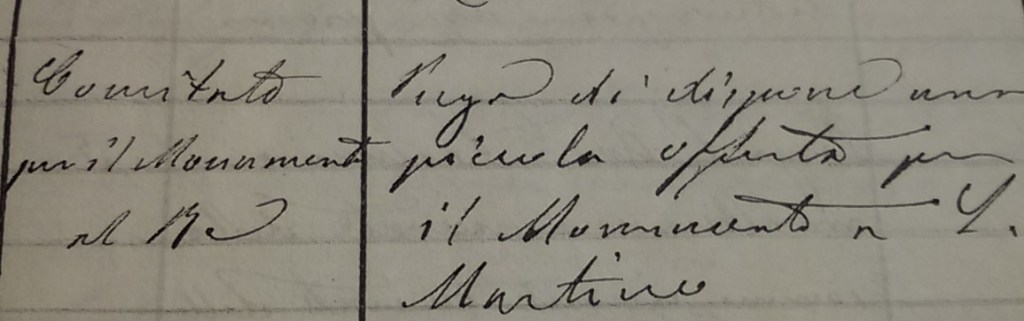 Comitato
per il Monumento
al Re
Prega di disporre una
piccola offerta per
il Monumento a S.
Martino